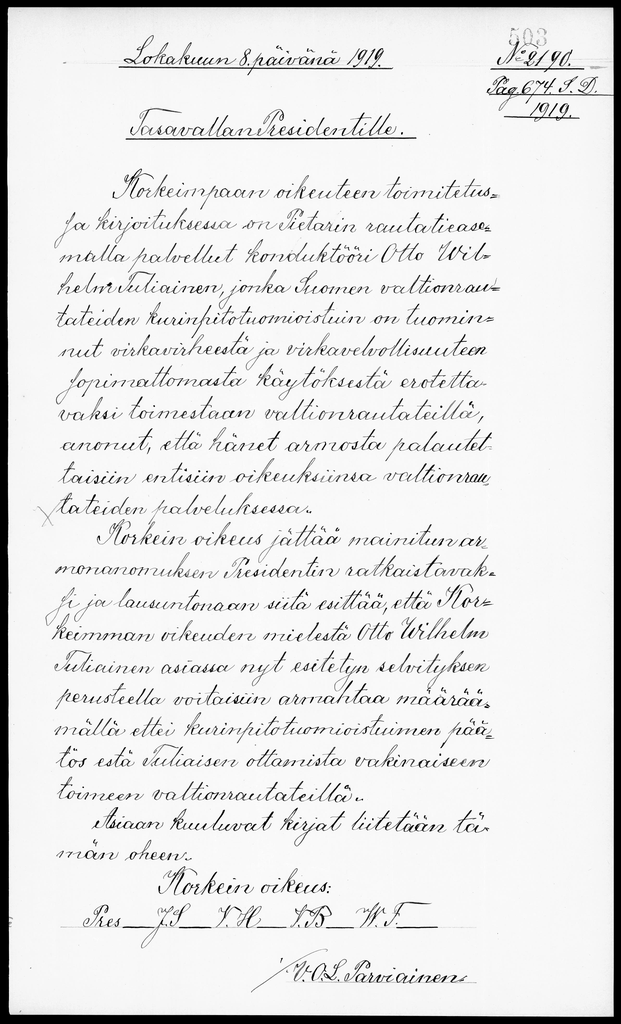 503
Lokakuun 8. päivänä 1919.
No 2190.
Pag. 674. S. D.
1919.
Tasavallan Presidentille.
Korkeimpaan oikeuteen toimitetus=
sa kirjoituksessa on Pietarin rautatiease=
malla palvellut konduktööri Otto Wil=
helm Tuliainen, jonka Suomen valtionrau=
tateiden kurinpitotuomioistuin on tuomin=
nut virkavirheestä ja virkavelvollisuuteen
sopimattomasta käytöksestä erotetta-
vaksi toimestaan valtionrautateillä,
anonut, että hänet armosta palautet-
taisiin entisiin oikeuksiinsa valtionrau
tateiden palveluksessa.
Korkein oikeus jättää mainitun ar=
monanomuksen Presidentin ratkaistavak=
si ja lausuntonaan siitä esittää, että Kor=
keimman oikeuden mielestä Otto Wilhelm
Tuliainen asiassa nyt esitetyn selvityksen
perusteella voitaisiin armahtaa määrää=
mällä ettei kurinpitotuomioistuimen pää=
tös estä Tuliaisen ottamista vakinaiseen
toimeen valtionrautateillä.
Asiaan kuuluvat kirjat liitetään tä=
män oheen.
Korkein oikeus:
Pres J.S V.H V.B W.F.
V.O.L. Parviainen.